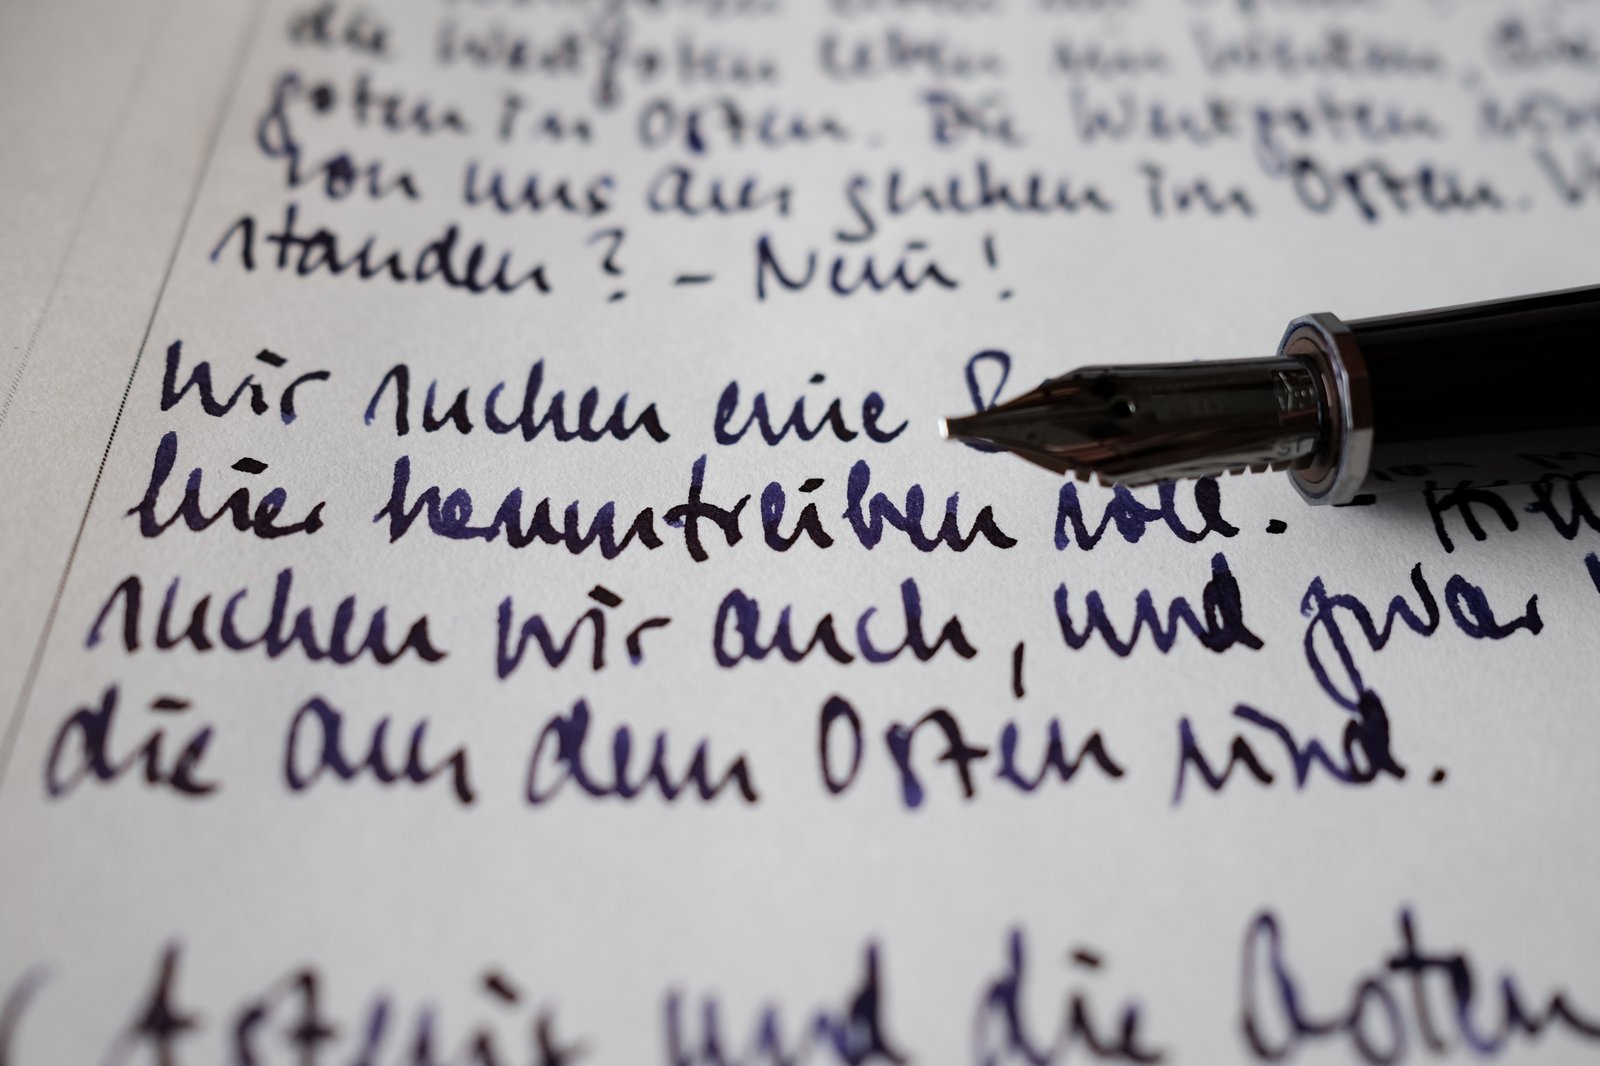 die Westgoten leben im Westen, die
goten im Osten. Die Westgoten sind
von uns aus gesehen im Osten. Ver
standen? - Nein!
Wir suchen eine
hier herumtreiben soll. -
suchen wir auch, und zwar
die aus dem Osten sind.
Asterix und die Goten